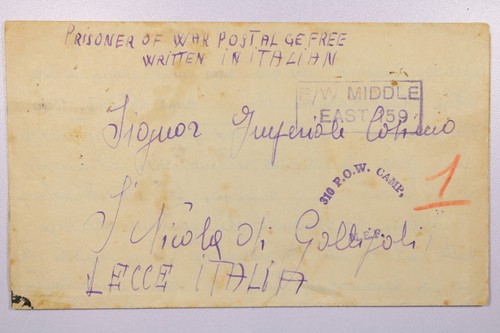 PRISONER OF WAR POSTALGEFREE
WRITTEN IN ITALIAN
P/W MIDDLE
EAST 159
Signor Imperiale
310 P.O.W. CAMP,
M.E.F.
1
S. Nicola di Gallipoli
LECCE ITALIA